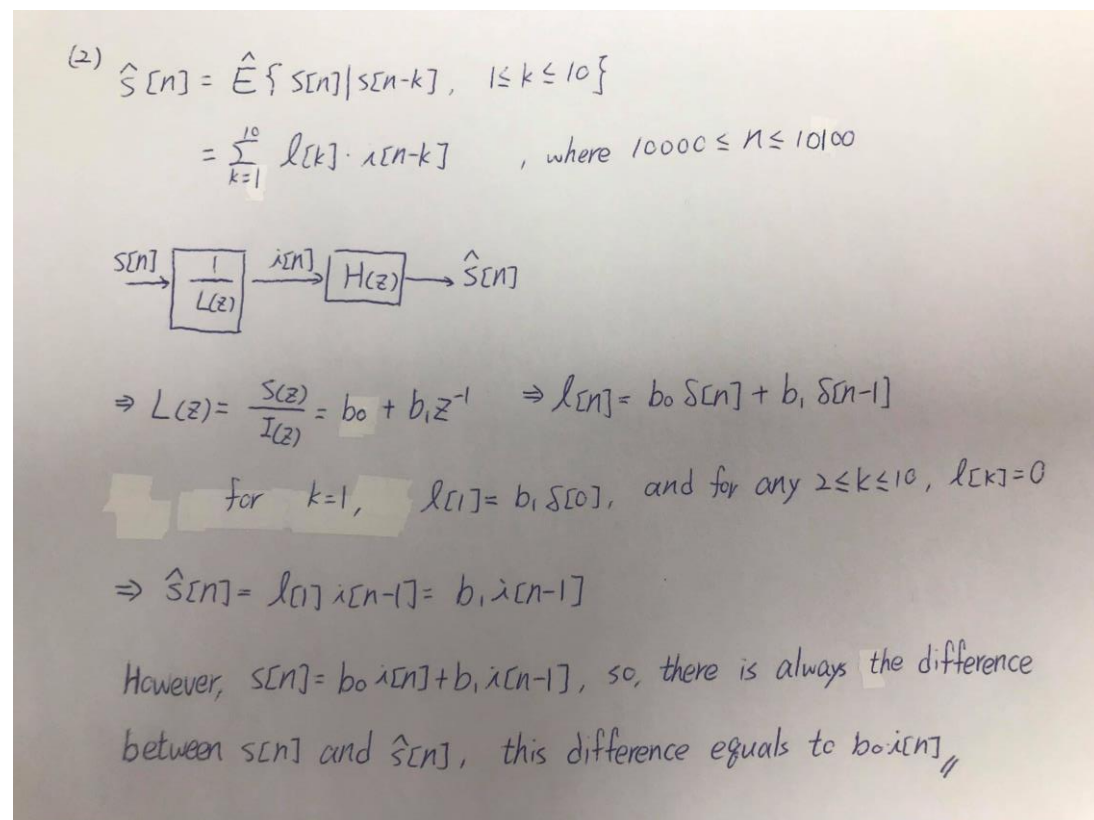 (2) ŝ[n] = Ê{ s[n]|s[n-k], 1≤ k ≤ 10}
= Σ_{k=1}^{10} l[k]· i[n-k] , where 10000 ≤ n ≤ 10100
s[n] → 1/L(z) → i[n] → H(z) → ŝ[n]
⇒ L(z)= S(z)/I(z) = b₀ + b₁z⁻¹ ⇒ l[n]= b₀ δ[n] + b₁ δ[n-1]
for k=1, l[1]= b₁ δ[0], and for any 2≤k≤10, l[k]=0
⇒ ŝ[n]= l[1] i[n-1]= b₁ i[n-1]
However, s[n]= b₀ i[n]+b₁ i[n-1], so, there is always the difference
between s[n] and ŝ[n], this difference equals to b₀·i[n]〃